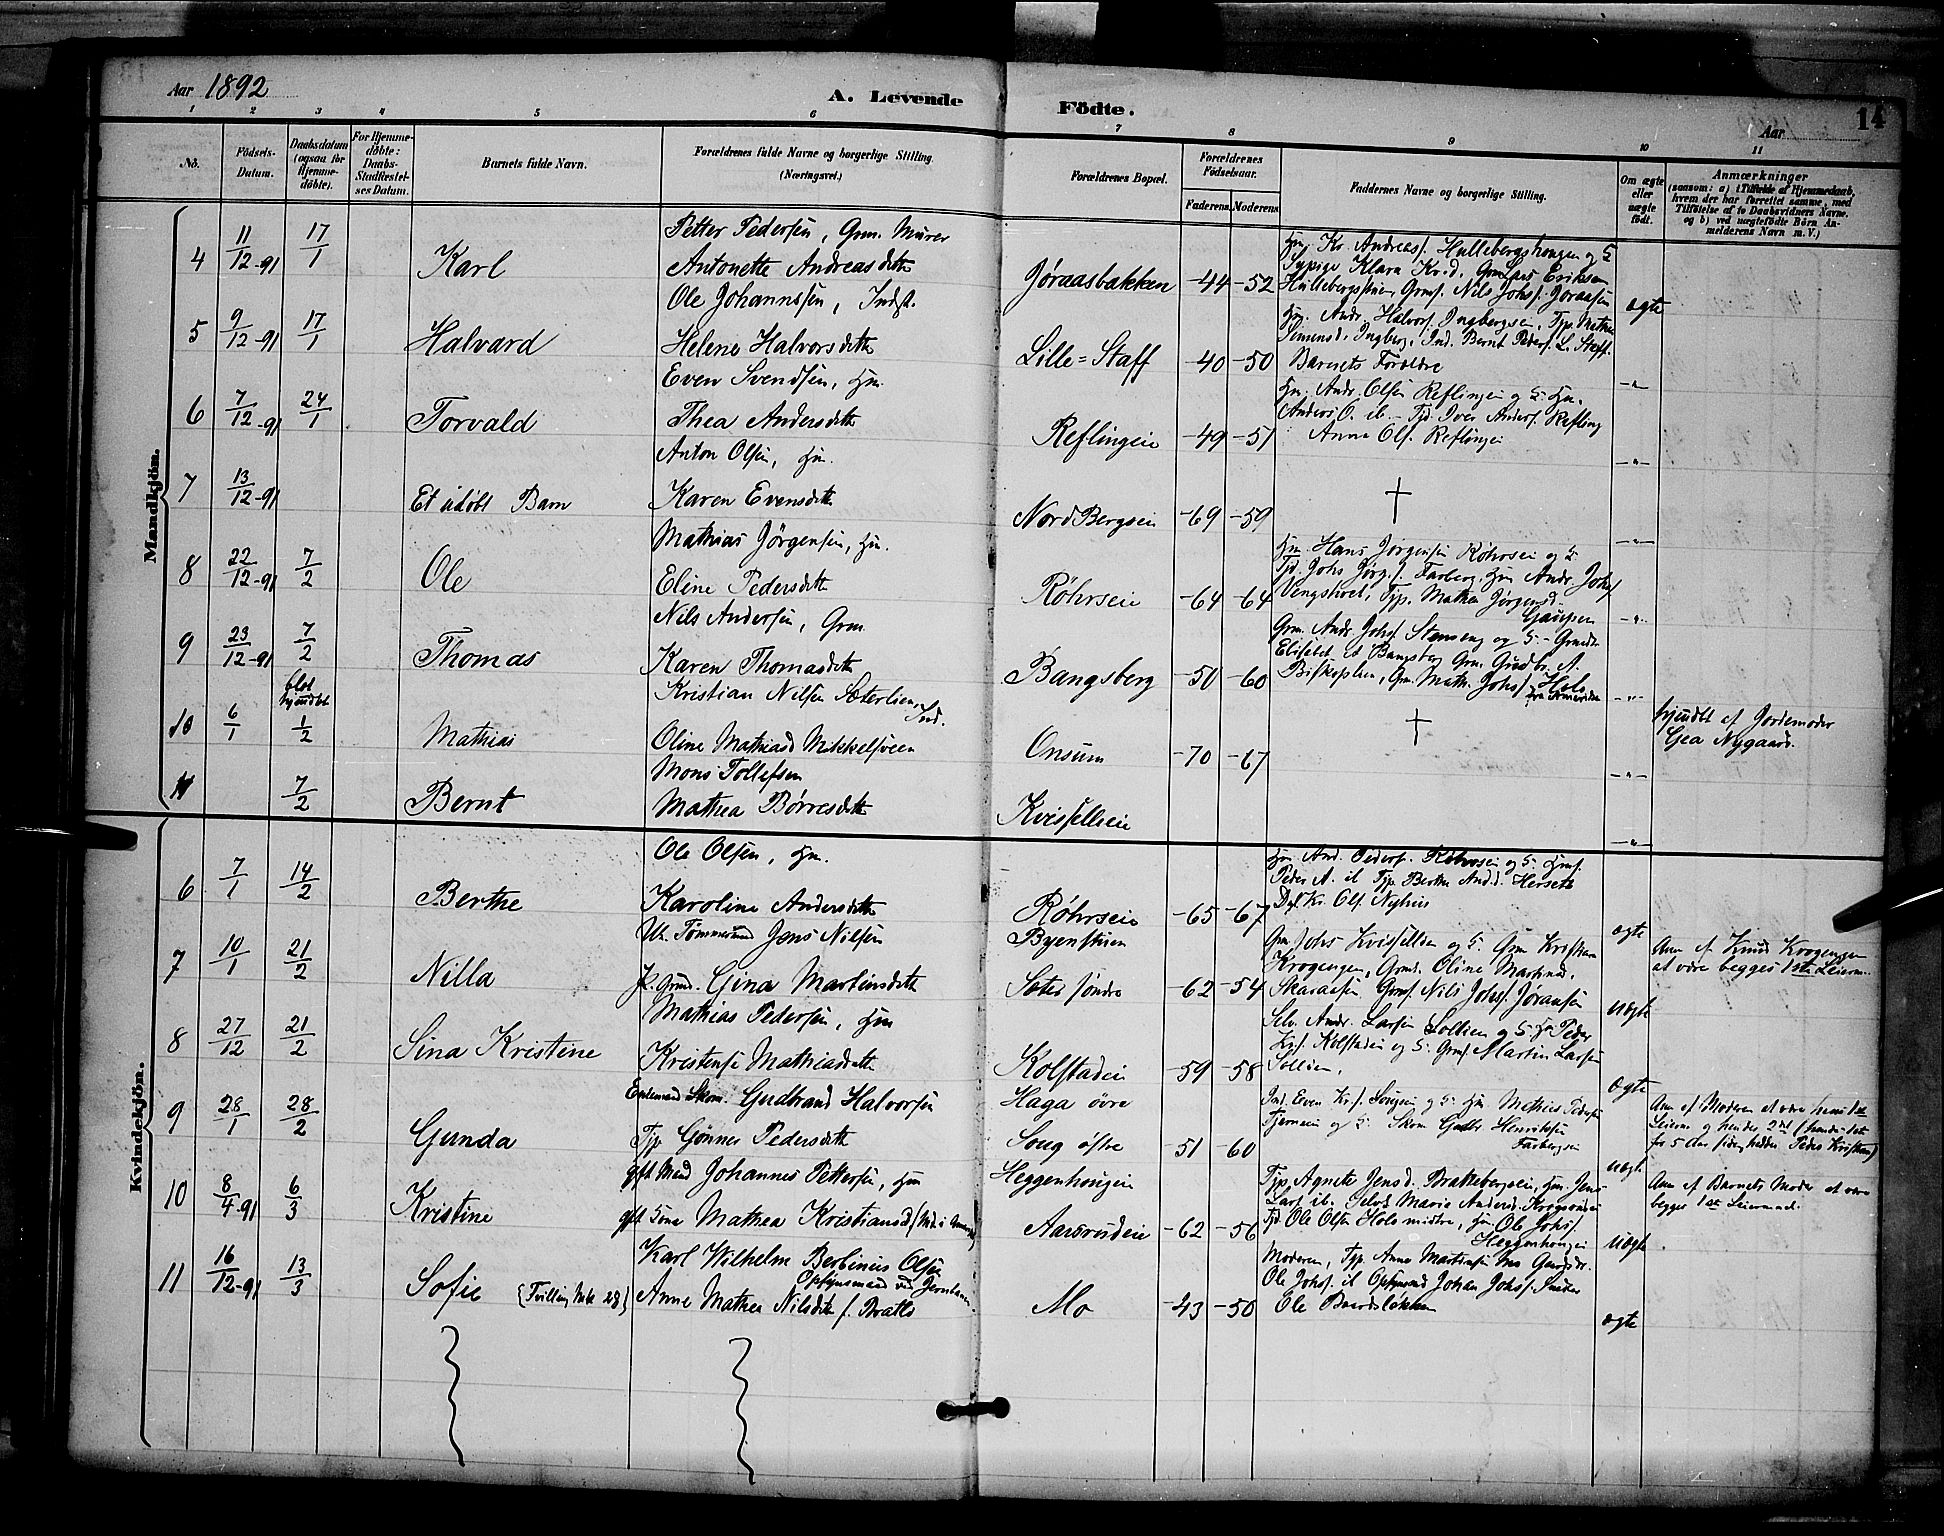 Aar 1892
A. Levende
Födte.
Aar
14
1 2 3 4 5 6 7 8 9 10 11
No.
Födsels-Datum.
Daabsdatum (ogsaa for Hjemmedöbte).
For Hjemmedöbte: Daabs-Stadfestelses Datum.
Barnets fulde Navn.
Forældrenes fulde Navne og borgerlige Stilling. (Næringsvei.)
Forældrenes Bopæl.
Forældrenes Födselsaar.
Faderens. Moderens.
Faddernes Navne og borgerlige Stilling.
Om ægte eller uægte födt.
Anmærkninger
(saasom: a) i Tilfælde af Hjemmedaab,
hvem der har forrettet samme, med
Tilföielse af to Daabsvidners Navne.
og b) ved uægtefödte Börn An-
melderens Navn m. V.)
Mandkjön.
4 11/12-91 17/1 Karl
Petter Pedersen, Grm. Murer
Antonette Andreasdtt
Jøraasbakken -44 -52
Hm. Kr. Andreass. Hullebergshougen og H
Sypige Klara Kr.d. Grm Lars Eriksen
Hullebergstuen, Grms. Nils Johs. Jøraasen
ægte
5 9/12-91 17/1 Halvard
Ole Johannssen, Indst.
Helene Halvorsdtt
Lille=Staff -40 -50
Hm. Andr. Halvors. Ingbergseie, Typ. Mathea
Simensd. Ingberg, Ind. Bernt Peders. L. Staff.
Barnets Forældre
-"-
6 7/12-91 24/1 Torvald
Even Svendsen, Hm.
Thea Andersdtt
Reflingeie -49 -51
Hm. Andr. Olsen Reflingeie og H. Hm.
Anders O. ib. - Tjd. Iver Anders. Refling
Anne Ols. Reflingei
-"-
7 13/12-91 Et udøbt Barn
Anton Olsen, Hm.
Karen Evensdtt
Nord Bergseie -69 -59
†
-"-
8 22/12-91 7/2 Ole
Mathias Jörgensen, Hm.
Eline Pedersdtt
Röhrseie -64 -64
Hm. Hans Jørgensen Røhrsei og H
Tjd. Johs Jørg.s. Farberg, Hm Andr. Johs
Vengstvet, Typ. Mathea Jørgensd.
Gaupsen
-"-
9 23/12-91 7/2 Thomas
Nils Andersen, Grm
Karen Thomasdtt
Bangsberg -50 -60
Grm. Andr. Johs. Stenseng og H. - Grmdt.
Elisabet ib Bangsberg Grm. Gudbr. A.
Biskoplien, Gm. Math. Johs. Hols
-"-
10 6/1 hjemdbt 1/2 Mathias
Kristian Nilsen Sæterlien Ind.
Oline Mathiasd Mikkelsveen
Onsum -70 -67
†
-"-
hjemdbt af Jordemoder
Gea Nygaard.
11 7/2 Bernt
Mons Tollefsen
Mathea Börresdtt
Kvisfellseie
-"-
Kvindekjön.
6 7/1 14/2 Berthe
Ole Olsen, Hm.
Karoline Andersdtt
Röhrseie -65 -67
Hm And. Peders. Röhrsei og H. Hms.
Peder A. ib Typ. Berthe And.d. Herseth
Kr. Ols. Nyhus
ægte
7 10/1 21/2 Nilla
Uk. Tømmermand Jens Nilsen
Pk. Grmd. Gina Martinsdtt
Byenstuen
Sæter søndre -62 -54
Gm. Johs Kvisfellien og H. Grm Kristian
Krogengen, Grmd. Oline Martinsd.
Skaraasen Grms. Nils Johs. Jøraasen
uægte
Anm af Knud Krogengen
at være begges 1ste Leierm.
8 27/12 21/2 Sina Kristine
Mathias Pedersen, Hm
Kristense Mathiasdtt
Kolstadeie -59 -58
Selv. Andr. Larsen Sollien og H. Hm Peder
Krs. Kolstadeie og H. Grms. Martin Larsen
Sollien.
ægte
9 28/1 28/2 Gunda
Enkemand Skom. Gudbrand Halvorsen
Typ Gönner Pedersdtt
Haga övre
Soug østre 51 60
Ind. Even Kr.s. Sougsei og H. Hm. Mathias Peders
Tjerneseie og H. Skom Gudbr Henriksen
Farbergsei
uægte
Anm af Moderen at være hans 1ste
Leierm og hendes 2det (hendes 1ste
for 5 Aar siden, hedder Peder Kristians)
10 8/4-91 6/3 Kristine
gft Mand Johannes Pettersen, Hm
gft Kone Mathea Kristiansd (Md. i Amerika)
Heggenhougeie
Aarsrudeie -62 -56
Typ. Agnete Jensd. Brakkebergseie, Hm Jens
Lars. ib. Selvs Marie Andersd. Krogsrudei
Tjd Ole Olsen Hols mistre, Hm Ole Johs.
Heggenhougei
uægte.
Anm af Barnets Moder at være
begges 1ste Leiermaal.
11 16/12-91 13/3 Sofie {Tvilling Mk 28}
Karl Wilhelm Berbinius Olsen
Opsynsmand ved Jernbanen
Anne Mathea Nilsdtt f. Bratlt
Mo -43 -50
Moderen, Typ. Anne Martinsen Mo
Ole Johs. ib Opsynsmd Johan Johs. Sinder
Ole Baardsløkken
ægte